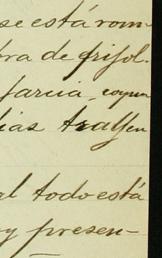 se está rom-
bra de crisol.
farcia, coyun
ias trassen
al todo está
y presen-